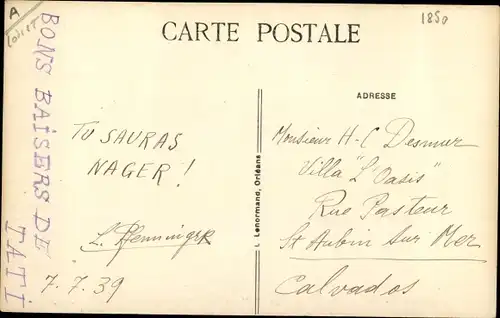 A
Loiret
1850
CARTE POSTALE
BONS BAISERS DE
TATI
TU SAURAS
NAGER !
7.7.39
L. Lenormand, Orléans
ADRESSE
Monsieur H-C Desmur
Villa "L'Oasis"
Rue Pasteur
St Aubin sur Mer
Calvados